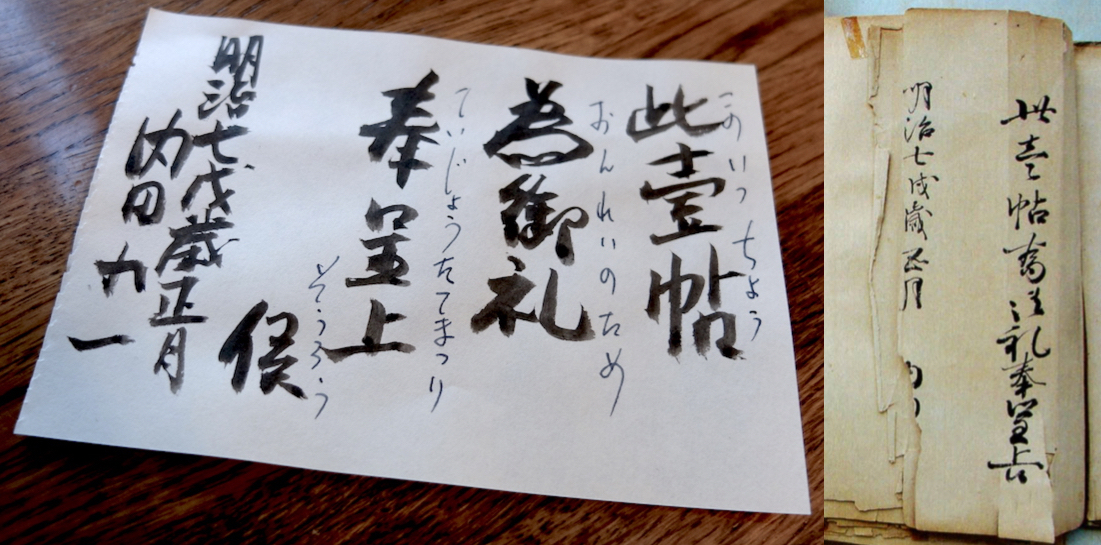 このいっちょう
此壹帖
おんれいのため
為御礼
ていじょうたてまつり
奉呈上
そうろう
候
明治七戌歳正月
内田九一
此壹帖為御礼奉呈上
明治七戌歳正月